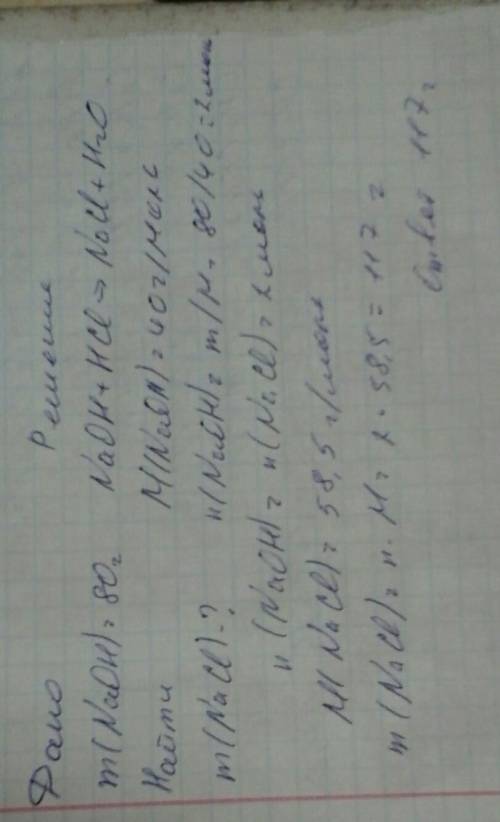 Дано Решение
m(NaOH)=80г NaOH+HCl→NaCl+H2O
Найти M(NaOH)=40г/моль
m(NaCl)-? n(NaOH)=m/M=80/40=2моль
n(NaOH)=n(NaCl)=2моль
M(NaCl)=58,5г/моль
m(NaCl)=n·M=2·58,5=117г
Ответ 117г